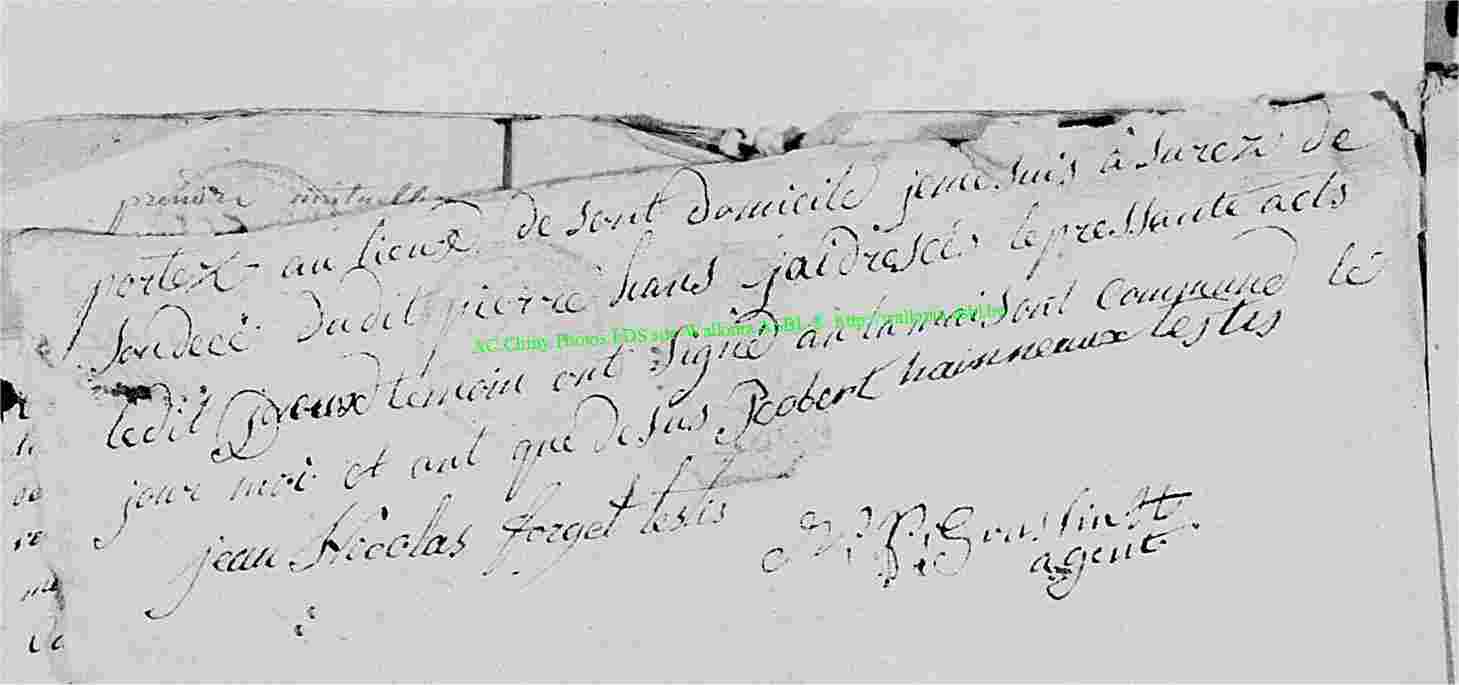 prendre mutuelle
portez au lieux de sont domicile jeme suis âsurez de
son decè dudit pierre hans jaidresées lepressante acts
ledit Deoux temoin ont signé an la maisont commune le
jour moi et ant que desus Robert hainneaux testis
jean Nicolas forget testis
agent
AC Chiny Photos EDS sur Wallonia ASBL © http://wallonia.asbl.be